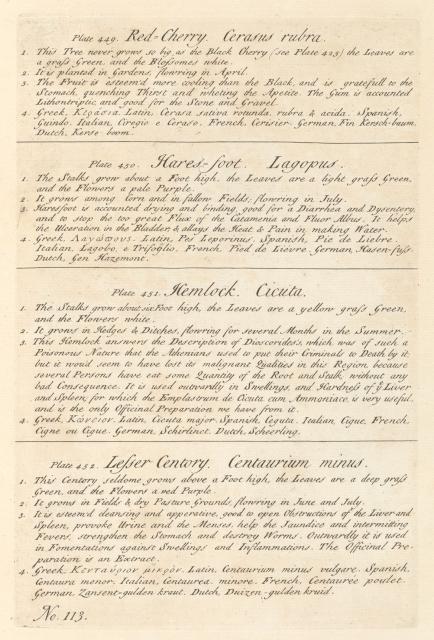 Plate 449. Red-Cherry. Cerasus rubra.
1. This Tree never grows so big as the Black Cherry (see Plate 425) the Leaves are
a graſs Green, and the Bloſsomes white.
2. It is planted in Gardens, flowring in April.
3. The Fruit is esteem'd more cooling than the Black, and is gratefull to the
Stomach, quenching Thirst and wheting the Apetite. The Gum is accounted
Lithontriptic, and good for the Stone and Gravel.
4. Greek, Κερασια. Latin, Cerasa sativa rotunda, rubra & acida. Spanish,
Guindo. Italian, Ciregio e Ceraso. French, Cerisier. German, Fin Kersch-baum.
Dutch, Kerse-boom.
Plate 450. Hares-foot. Lagopus.
1. The Stalks grow about a Foot high, the Leaves are a light graſs Green,
and the Flowers a pale Purple.
2. It grows among Corn and in fallow Fields; flowring in July.
3. Haresfoot is accounted drying and binding, good for a Diarrhæa and Dysentery,
and to stop the too great Flux of the Catamenia and Fluor Albus. It helps
the Ulceration in the Bladder, & allays the Heat & Pain in making Water.
4. Greek, Λαγώπους. Latin, Pes Leporinus. Spanish, Pie de Liebre.
Italian, Lagobo, e Trifoglio. French, Pied de Lievre. German, Hasen-fuſs.
Dutch, Gen Hazemont.
Plate 451. Hemlock. Cicuta.
1. The Stalks grow about six Foot high, the Leaves are a yellow graſs Green,
and the Flowers white.
2. It grows in Hedges & Ditches, flowring for several Months in the Summer.
3. This Hemlock answers the Description of Dioscorides's, which was of such a
Poisonous Nature that the Athenians used to put their Criminals to Death by it;
but it wou'd seem to have lost its malignant Qualities in this Region, because
several Persons have eat some Quantity of the Root and Stalk, without any
bad Consequence. It is used outwardly in Swellings, and Hardneſs of yͤ Liver
and Spleen, for which the Emplastrum de Cicuta cum Ammoniaco is very useful,
and is the only Officinal Preparation we have from it.
4. Greek, Κώνειον. Latin, Cicuta major. Spanish, Ceguta. Italian, Cigue. French,
Cigne ou Cigue. German, Schirlinct. Dutch, Scheerling.
Plate 452. Leſser Centory. Centaurium minus.
1. This Centory seldome grows above a Foot high, the Leaves are a deep graſs
Green, and the Flowers a red Purple.
2. It grows in Fields & dry Pasture Grounds, flowring in June and July.
3. It is esteem'd cleansing and apperative, good to open Obstructions of the Liver and
Spleen, provoke Urine and the Menses, help the Jaundice and intermitting
Fevers, strengthen the Stomach and destroy Worms. Outwardly it is used
in Fomentations against Swellings and Inflammations. The Officinal Pre-
paration is an Extract.
4. Greek, Κενταύριον μικρὸν. Latin, Centaurium minus vulgare. Spanish,
Centaura menor. Italian, Centaurea minore. French, Centaurée poulet.
German, Zansent-gulden kraut. Dutch, Duizen-gulden kruid.
No. 113.